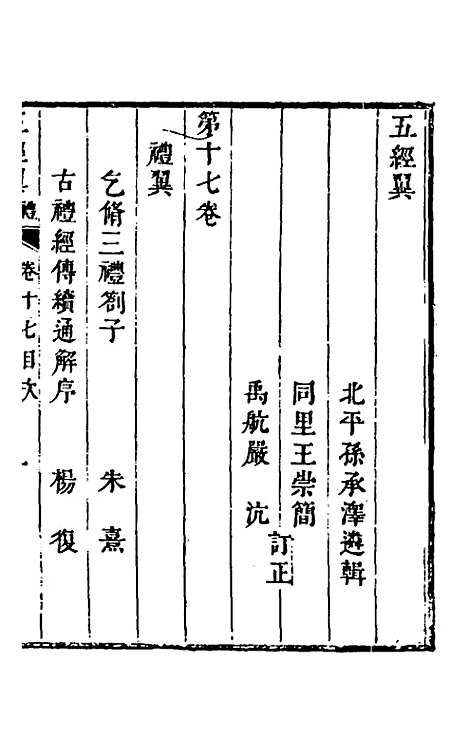 五經翼
北平孫承澤遴輯
同里王崇簡
禹航嚴　沆
訂正
第十七卷
禮翼
乞脩三禮劄子　朱熹
古禮經傳續通解序　楊復
五經翼禮　卷十七目次　一